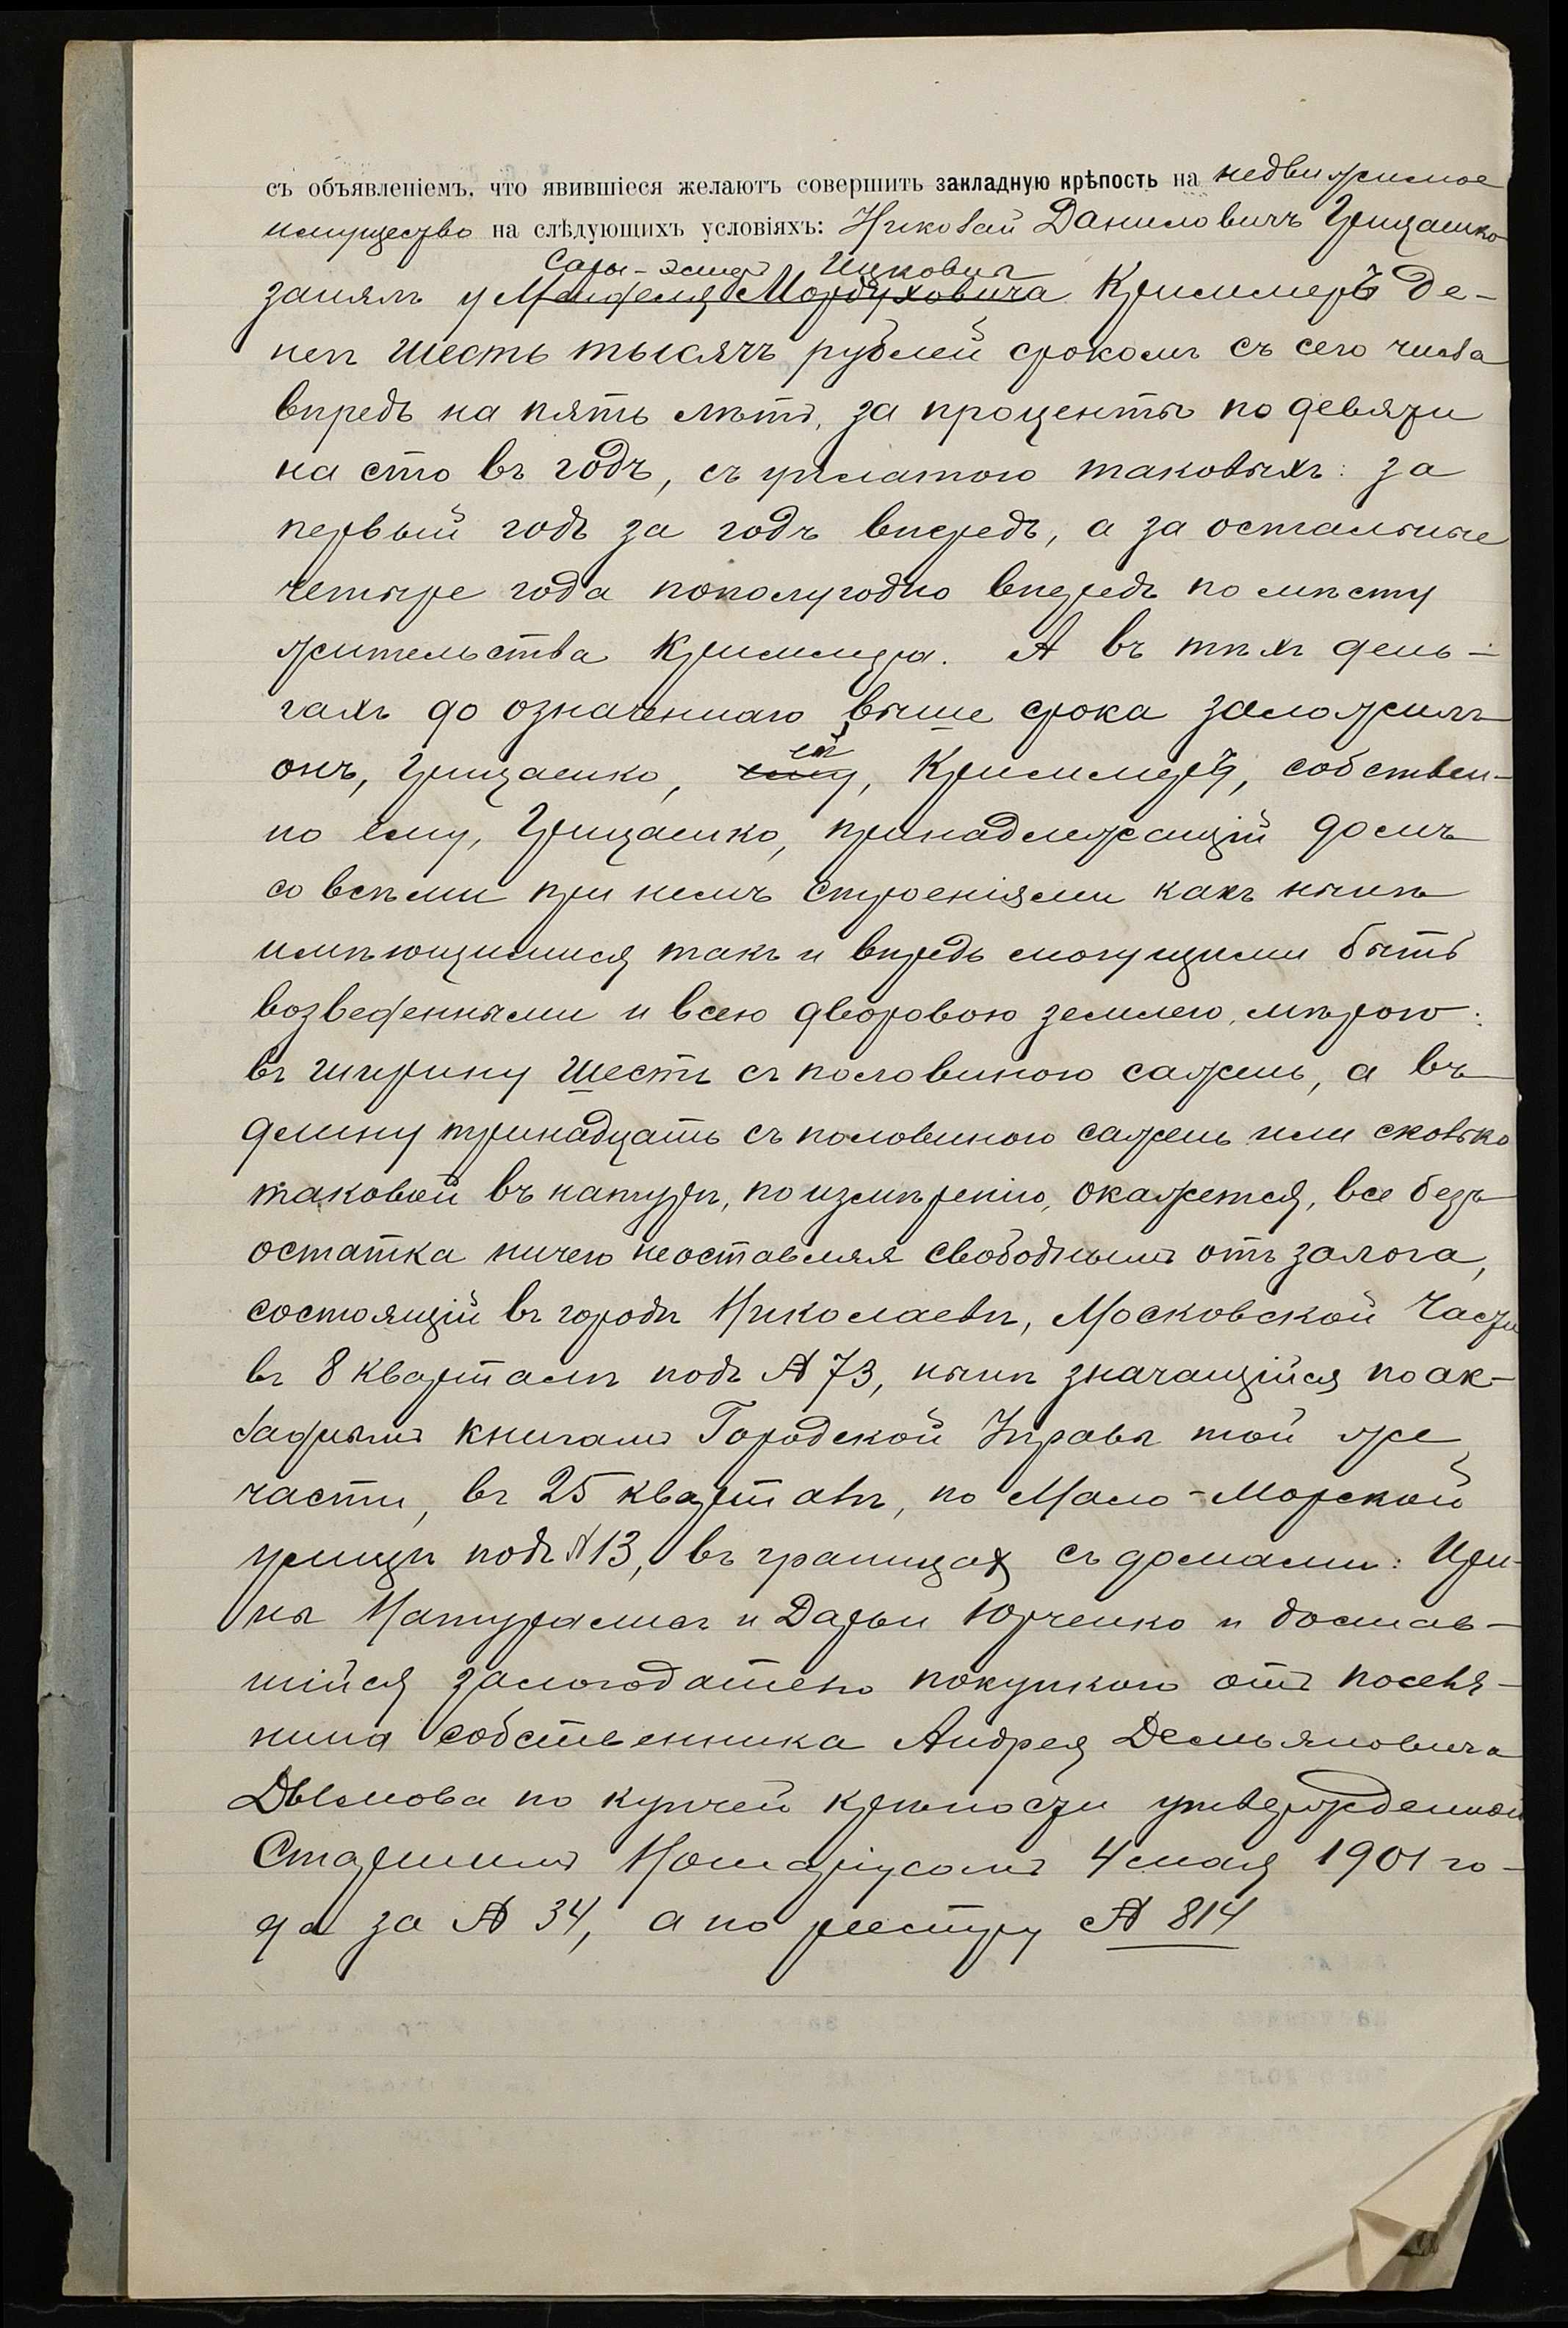 съ объявленіемъ, что явившіеся желаютъ совершить закладную крѣпость на недвижимое
имущество на слѣдующихъ условіяхъ: Николай Даниловичъ Грицаенко
Сары-Энты Ицковны
занялъ у Манфеля Мордуховича Криммеръ де-
негъ шесть тысячъ рублей срокомъ съ сего числа
впредь на пять лѣтъ, за проценты по девяти
на сто въ годъ, съ уплатою таковыхъ: за
первый годъ за годъ впередъ, а за остальные
четыре года пополугодно впередъ по мѣсту
жительства Криммера. А въ тѣхъ день-
гахъ до означеннаго выше срока заложилъ
ей
онъ, Грицаенко, ему, Криммеръ, собствен-
но ему, Грицаенко, принадлежащій домъ
со всѣми при немъ строеніями какъ нынѣ
имѣющимися такъ и впредь могущими быть
возведенными и всею дворовою землею, мѣрою:
въ ширину шесть съ половиною сажень, а въ
длину тринадцать съ половиною сажень или сколько
таковой въ натурѣ, по измѣренію, окажется, все безъ
остатка ничего неоставляя свободнымъ отъ залога,
состоящій въ городѣ Николаевѣ, Московской Части
въ 8 кварталѣ подъ № 73, нынѣ значащійся по ок-
ладнымъ книгамъ Городской Управы той же
части, въ 25 кварталѣ, по Мало-Морской
улицѣ подъ № 13, въ границахъ съ домами: Ири-
ны и Дарьи Юрченко и достав-
шійся залогодателю покупкою отъ поселя-
нина собственника Андрея Демьяновича
Дымова по купчей крѣпости утвержденной
Старшимъ Нотаріусомъ 4 мая 1901 го-
да за № 34, а по реестру № 814